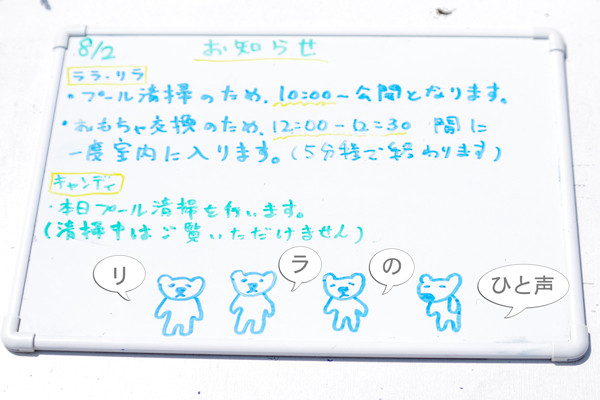 8/2 お知らせ
ララ・リラ
・プール清掃のため、10:00~公開となります。
・おもちゃ交換のため、12:00-12:30 間に
一度室内に入ります。(5分程で終わります)
キャンディ
・本日プール清掃を行います。
(清掃中はご覧いただけません)
リ ラ の ひと声